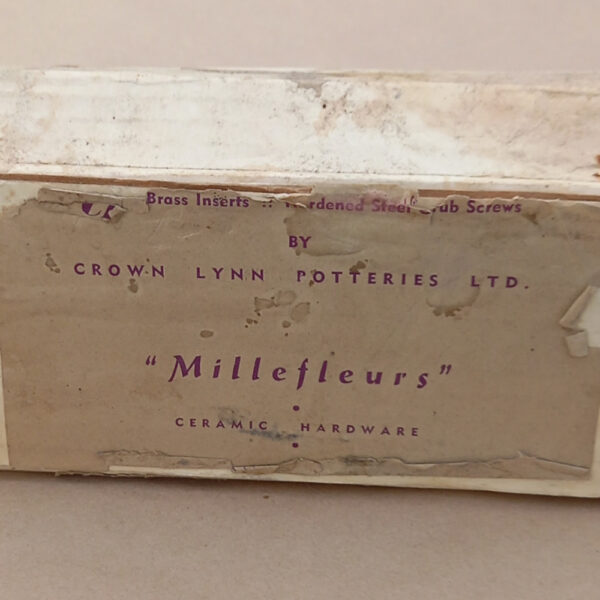 Brass Inserts :: Hardened Steel Grub Screws
BY
CROWN LYNN POTTERIES LTD.
"Millefleurs"
CERAMIC HARDWARE